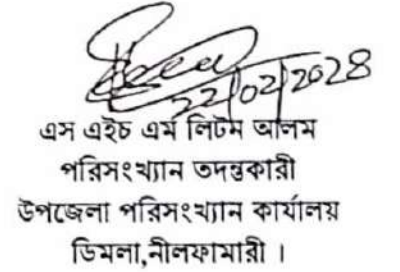 22/02/2028
এস এইচ এম লিটম আলম
পরিসংখ্যান তদন্তকারী
উপজেলা পরিসংখ্যান কার্যালয়
ডিমলা,নীলফামারী ।